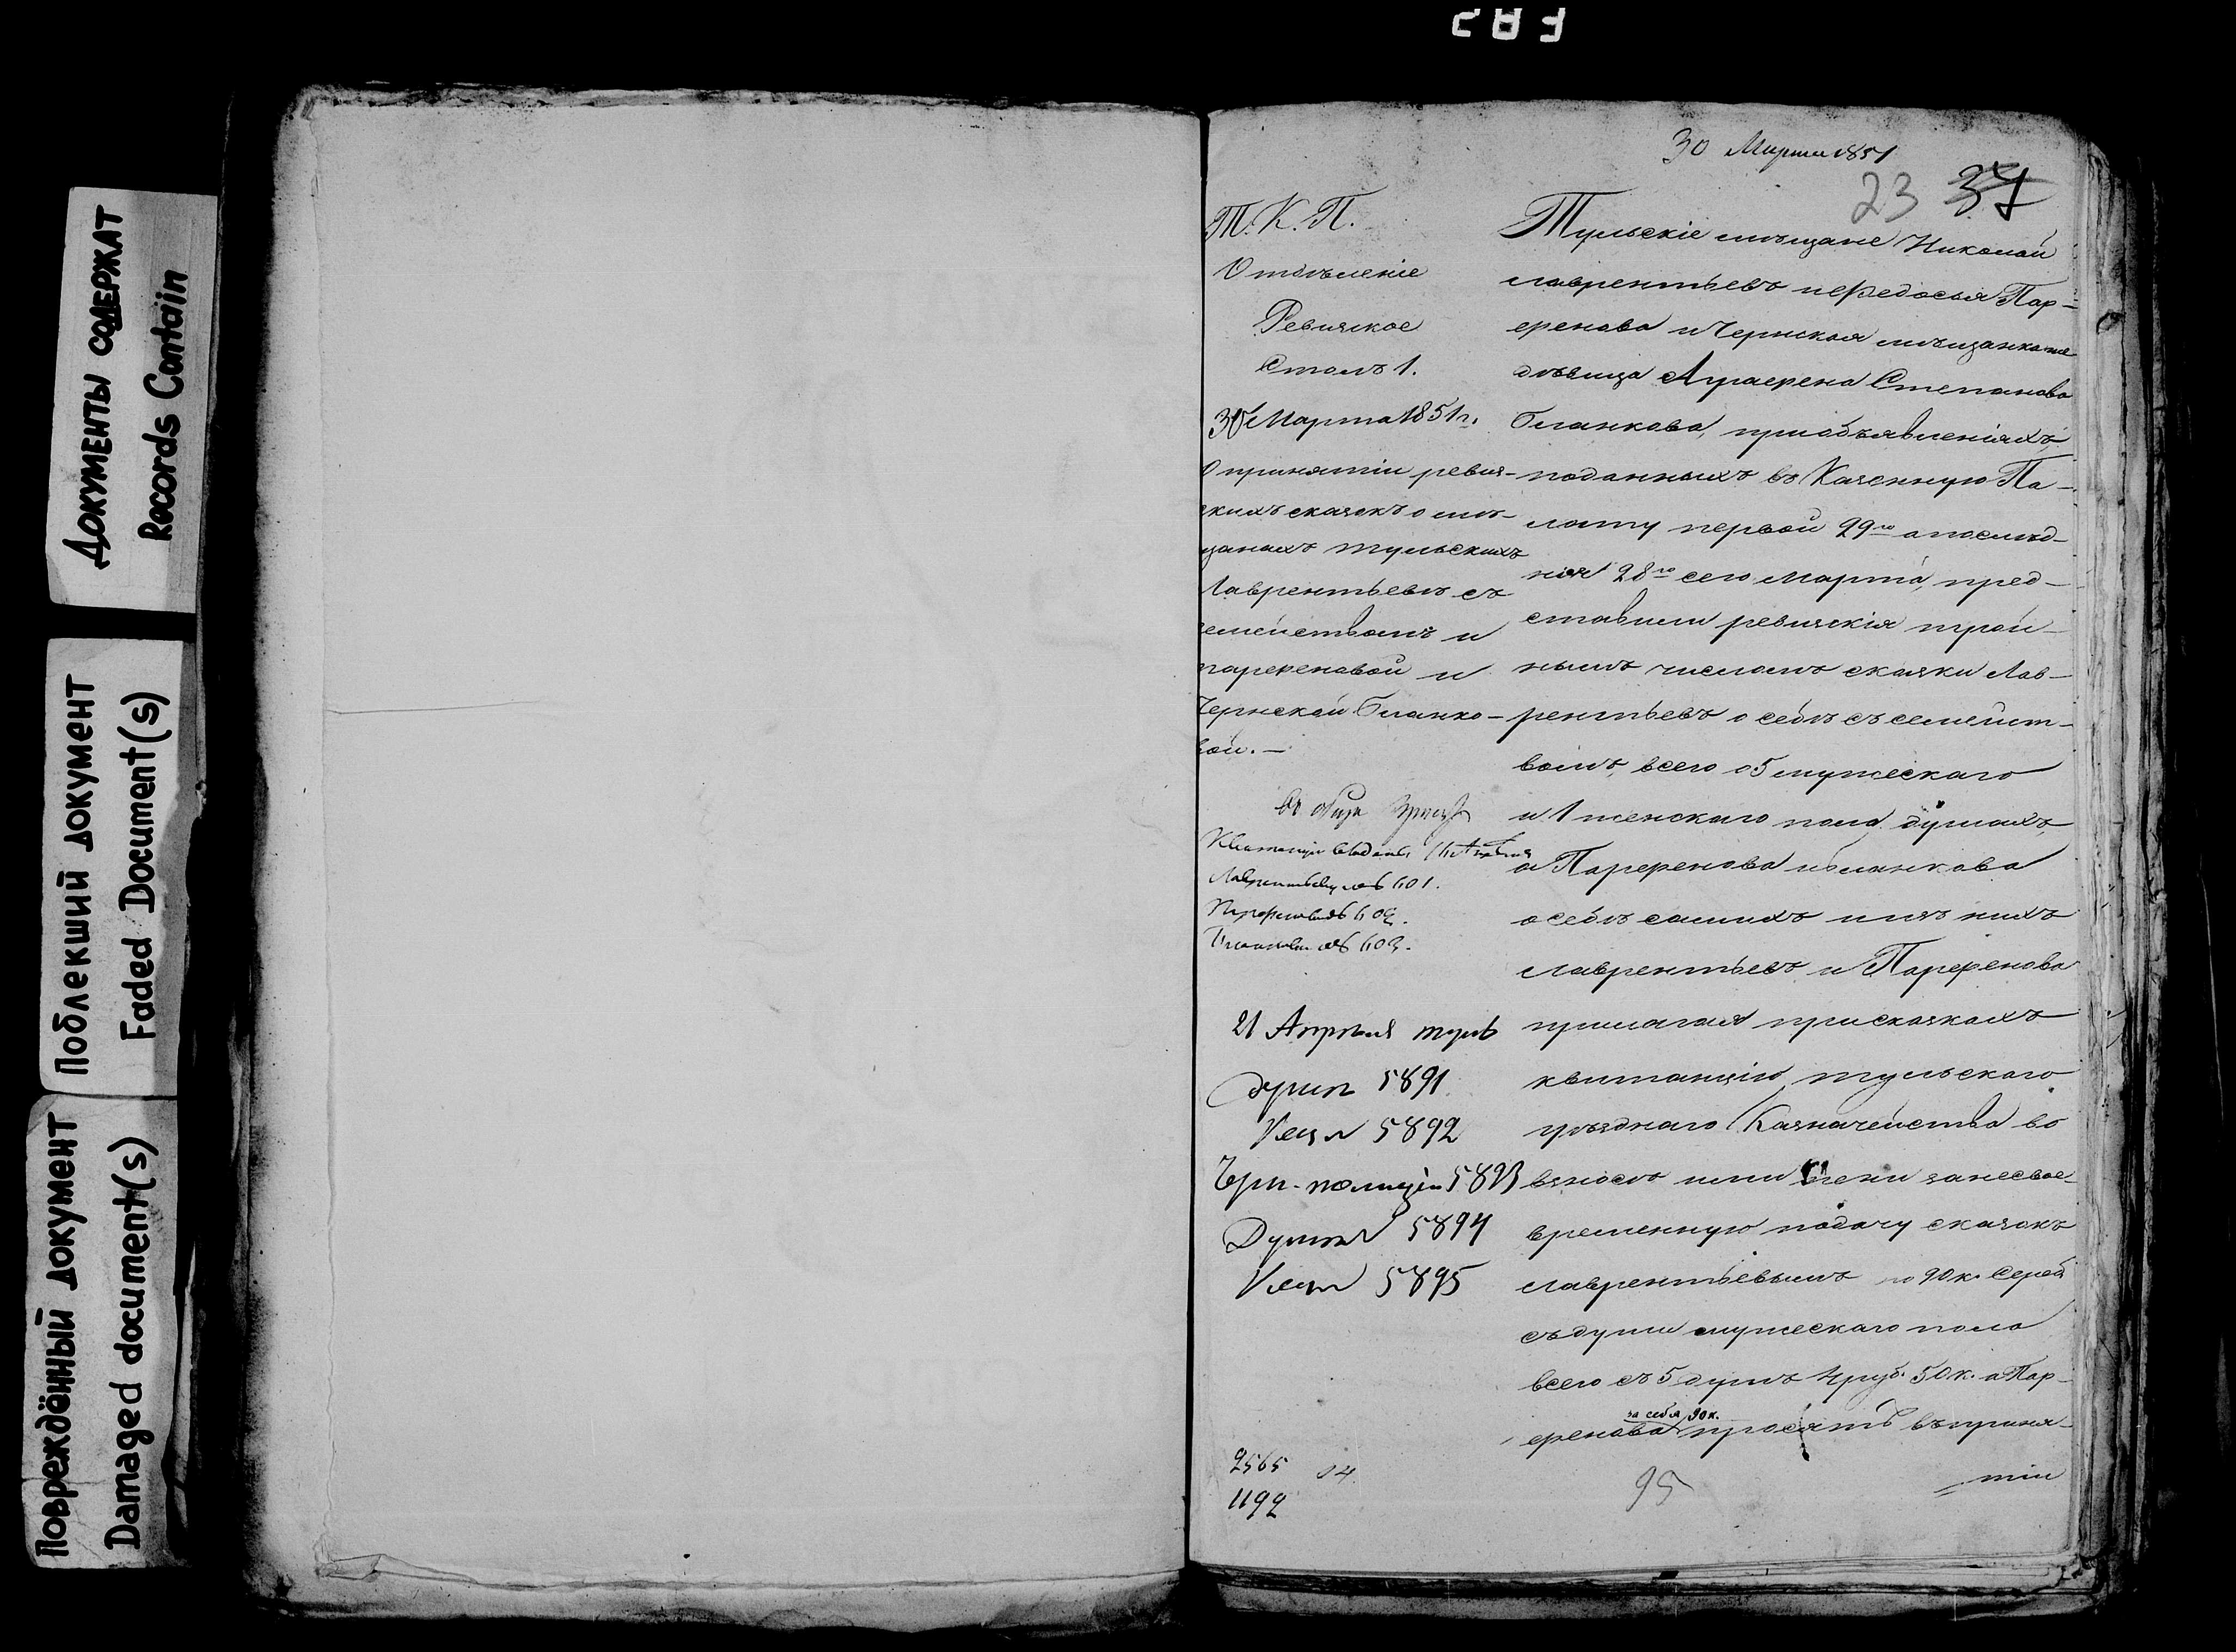 Документы содержат
Records Contain
Поблекший документ
Faded Document(s)
Повреждённый документ
Damaged document(s)
30 Марта 1851
23 37
Т. К. П.
Отдѣленіе
Ревизское
Столъ 1.
30 Марта 1851 г.
О принятіи ревиз-
скихъ сказокъ о мѣ-
щанахъ тульскихъ
Лаврентьевѣ съ
семействомъ и
парфеновой и
Чернской Бланко-
вой. —
Квитанціи выданы
Лаврентьеву № 601.
Парфеновой № 602.
Бланковой № 603.
21 Апрѣля тул
думѣ 5891
Казн 5892
Черн. полиціи 5893
Думѣ 5894
Казн 5895
2565 04
1192
Тульскіе мѣщане Николай
Лаврентьевъ и Федосья Пар-
фенова и Чернская мѣщанка
дѣвица Аграфена Степанова
Бланкова, при объявленіяхъ,
поданныхъ въ Казенную Па-
лату первой 29го а послѣд-
ніи 28го сего Марта, пред-
ставили ревизскія трой-
нымъ числомъ сказки Лав-
рентьевъ о себѣ съ семейст-
вомъ, всего о 5 мужескаго
и 1 женскаго пола душахъ,
а Парфенова и Бланкова
о себѣ самихъ и изъ нихъ
Лаврентьевъ и Парфенова
прилагая при сказкахъ
квитанцію тульскаго
уѣзднаго Казначейства во
взносѣ ими пени за несвое-
временную подачу сказокъ
Лаврентьевымъ по 90 к. сереб
съ души мужескаго пола
всего съ 5 душъ 4 руб. 50 к. а Пар-
за себя 90 к.
фенова просятъ въ приня-
95
тіи